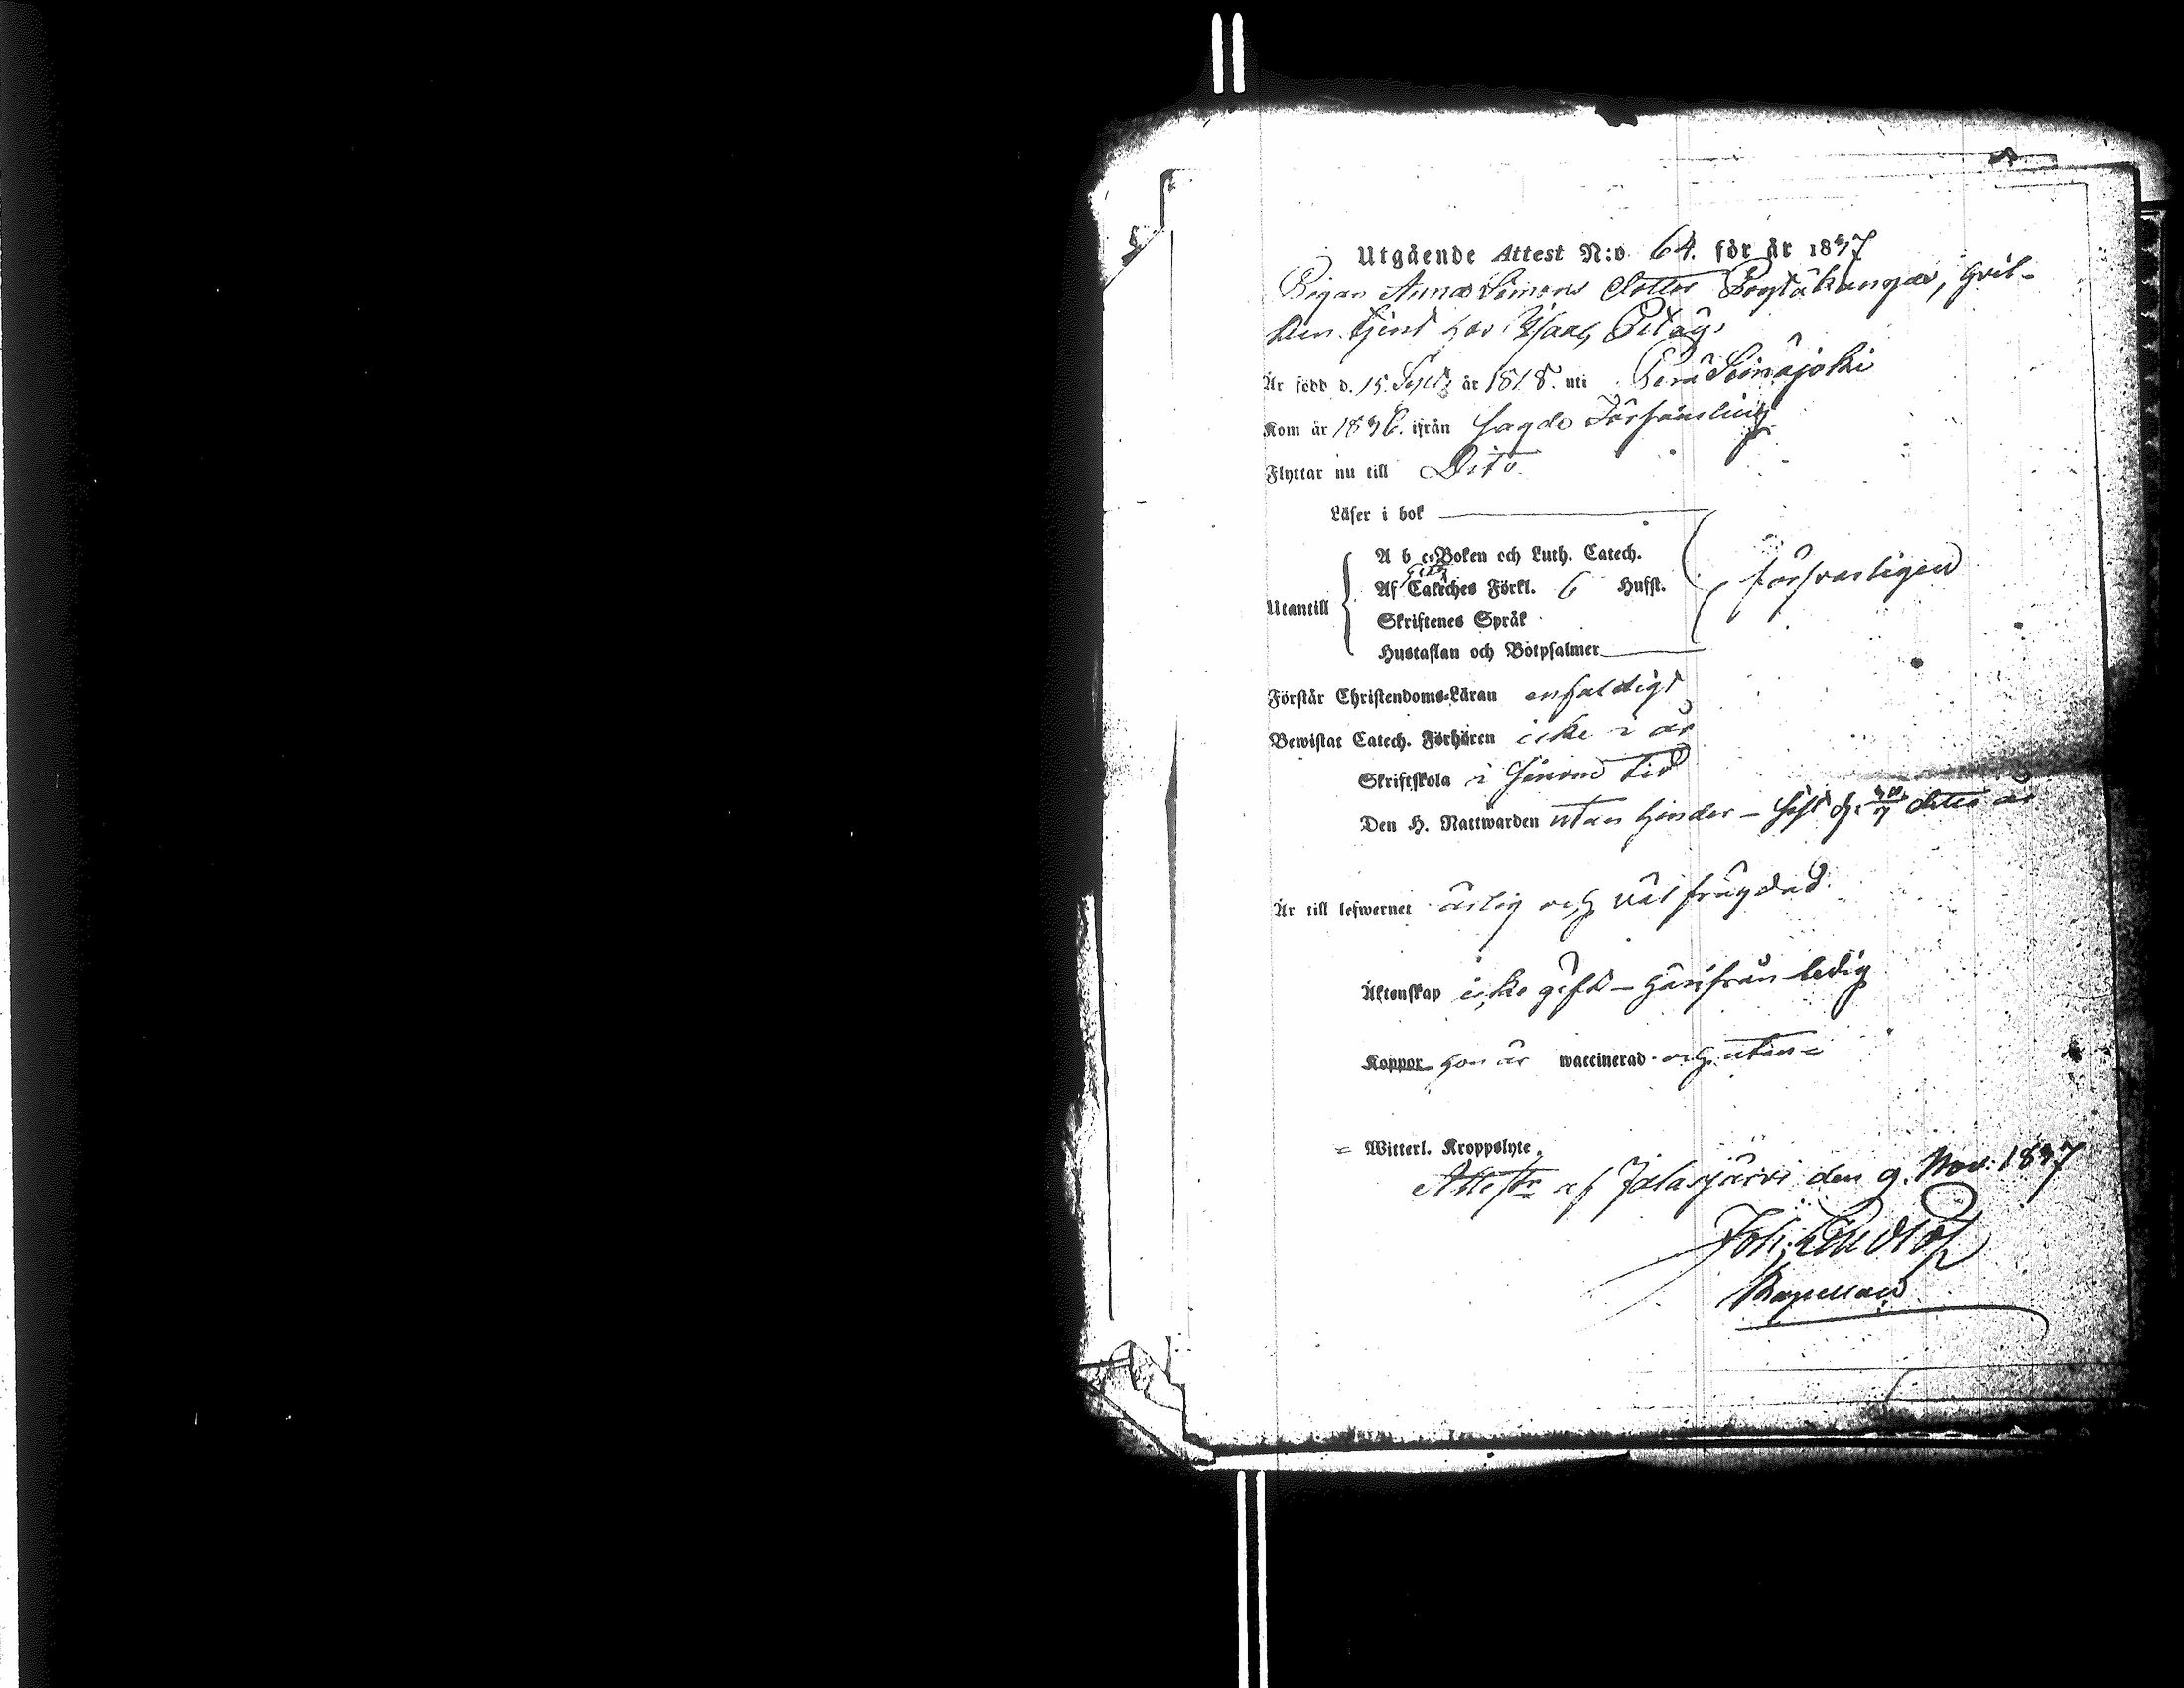 Utgående Attest N:o 64. för år 1837
Pigan Anna Simons Dotter, hvil-
ken tjent hos Isaac
Är född d. 15. Sept. år 1818. uti Perä Seinäjoki
Kom år 1836. ifrån sagde Församling
Flyttar nu till Dito
Läser i bok
A b c-Boken och Luth. Catech.
försvarligen
Af Catêches Förkl. 6 Hufst.
Utantill
Skriftenes Språk
Hustaflan och Botpsalmer
Förstår Christendoms-Läran enfaldigt
Bewistat Catech. Förhören icke i år
Skriftskola i sinom tid
Den H. Nattwarden utan hinder – sist d. detta år
Är till lefwernet ärlig och välfrägdad.
Äktenskap icke gift – härifrån ledig
Koppor hon är waccinerad och utan =
= Witterl. Kroppslyte.
Attestr af Jalasjärvi den 9. Nov: 1837
Joh:
Kapellan